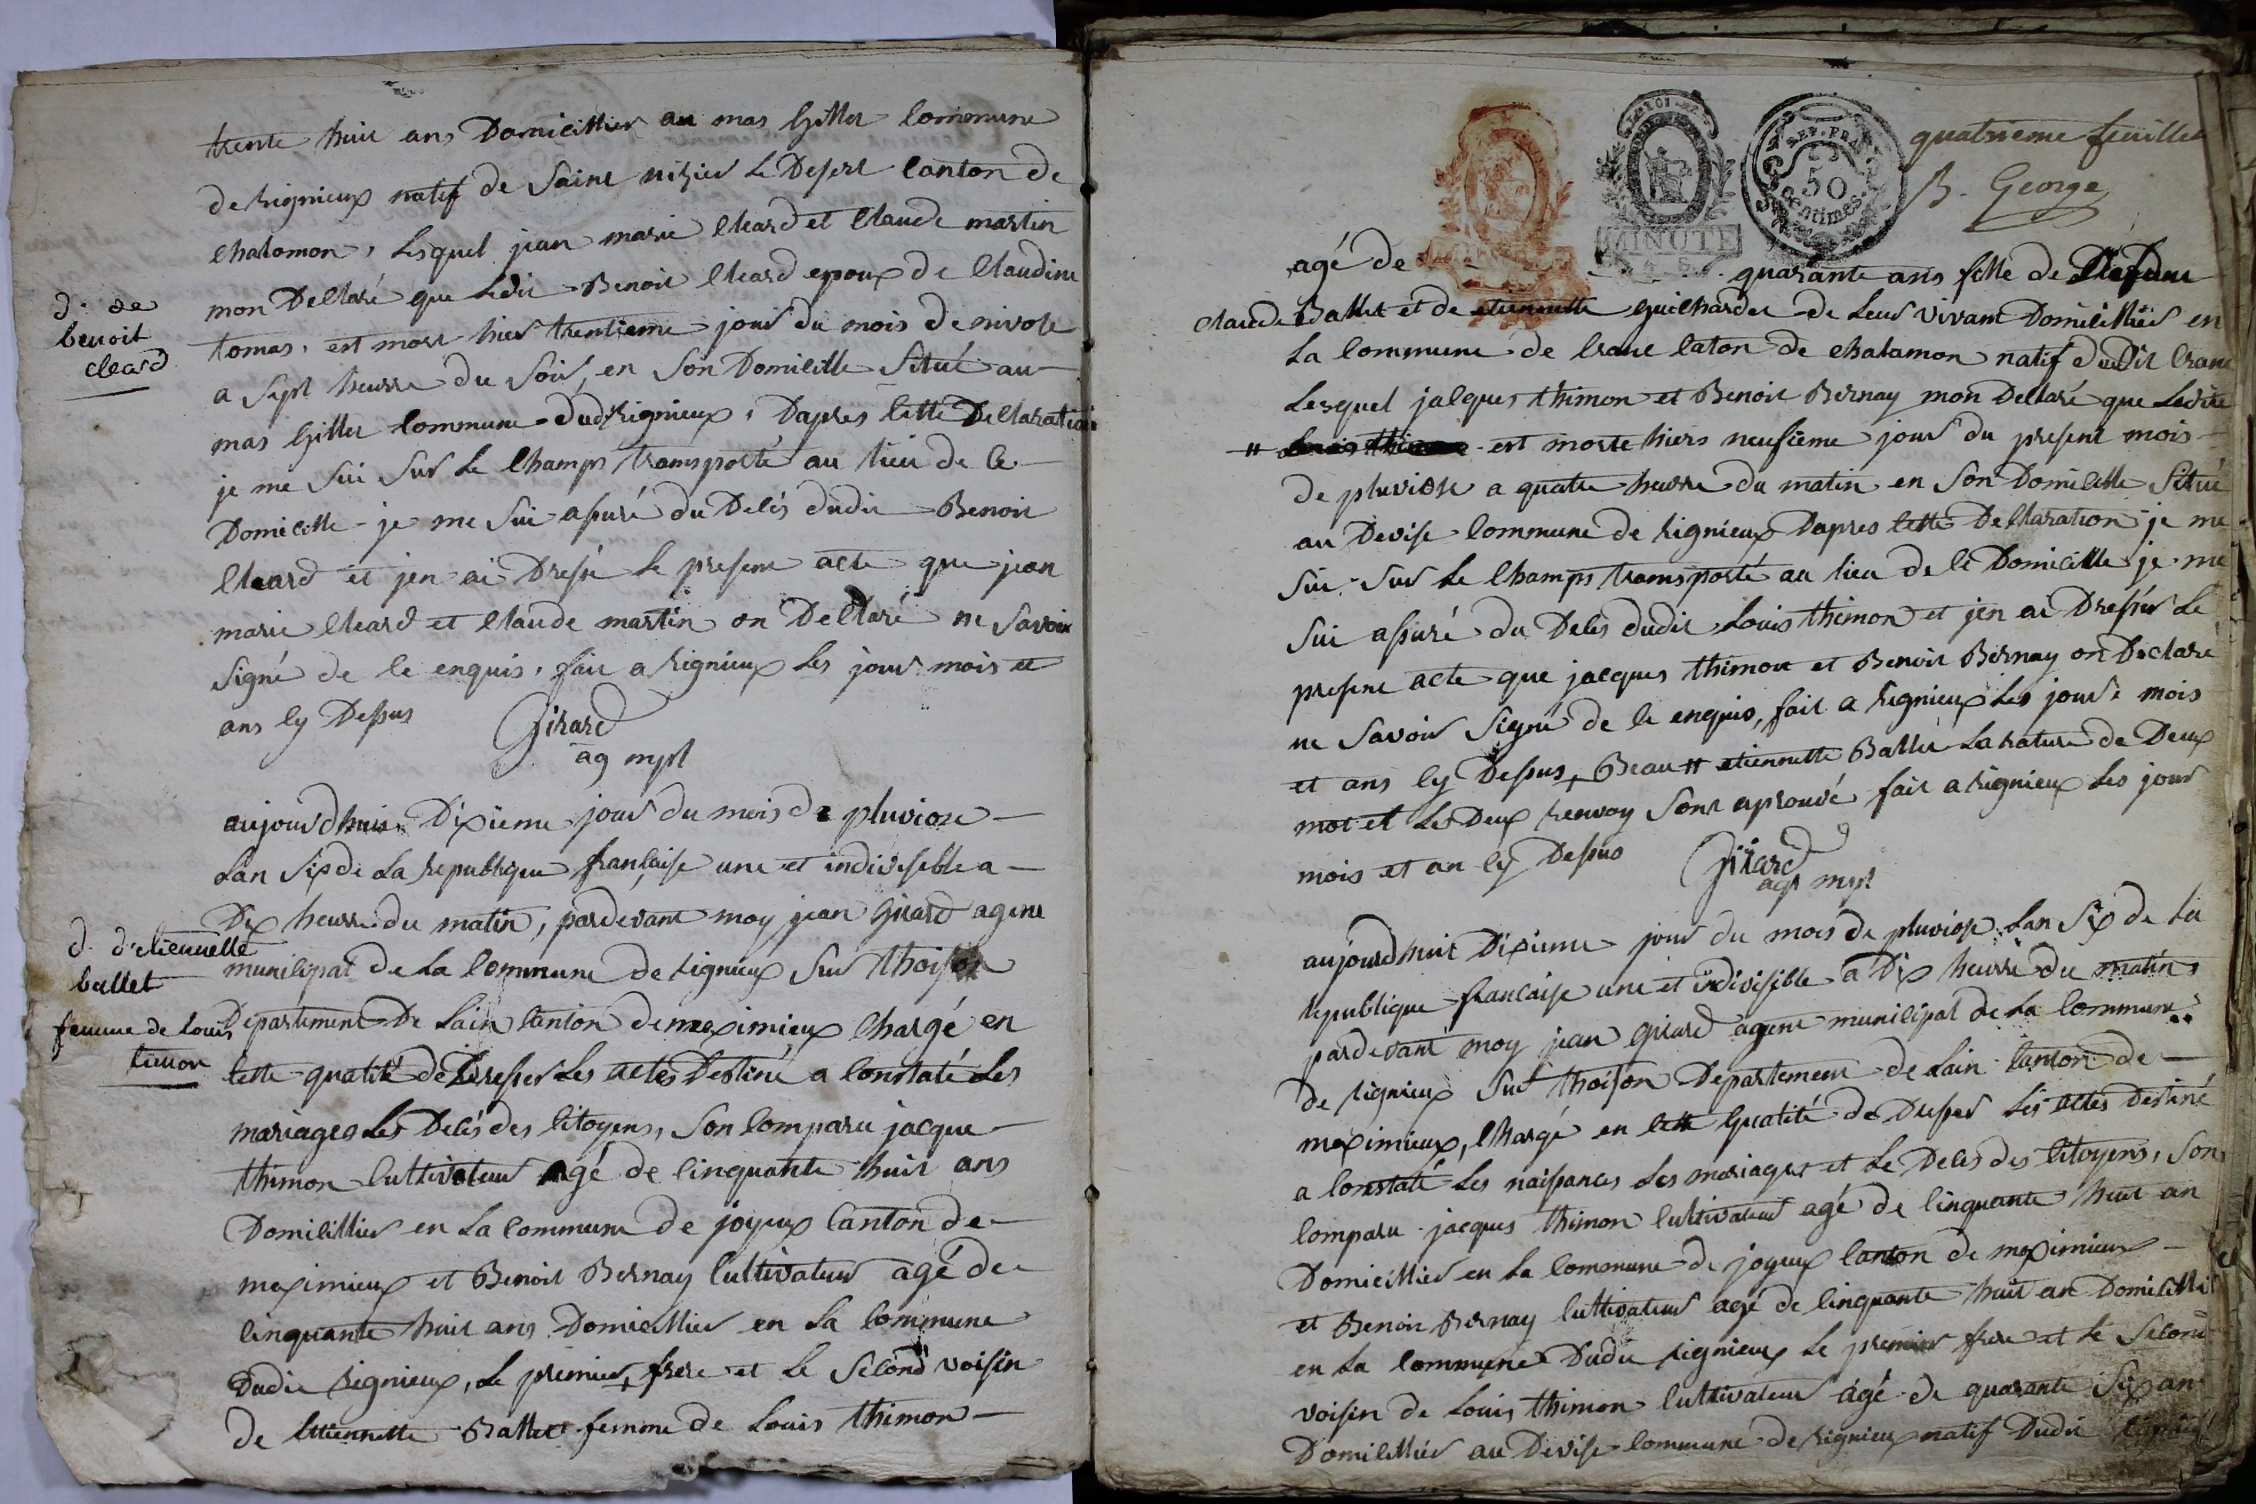 trente huit ans Domicillier au mas Gillet Commune
de Rignieux natif de Saint nizier Le Desert Canton de
Chalamon, Lesquel jean marie Cleard et Claude martin
mon Declaré que Ledit Benoit Cleard epoux de Claudine
tomas, est mort hier trentieme jour du mois de nivose
a Sept heurre du Soir, en Son Domicille Situé au
mas Gillet Commune dudt Rignieux, Dapres Cette Declaration
je me Sui Sur Le Champs transporté au lieu de Ce
Domicille je me Sui assuré du Deces dudit Benoit
Cleard et jen ai Dressé Le present acte que jean
marie Cleard et Claude martin on Declaré ne Savoir
Signé de Ce enquis, fait a Rignieux Les jour mois et
ans Cy Dessus
Girard
ag mpl
d. de
benoit
cleard
aujourdhuis Dixieme jour du mois de pluviose
Lan Six de La Republique française une et indivisible a
Dix heurre du matin, pardevant moy jean Girard agent
municipal de La Commune de Rignieux Sur Thoison
Departement De Lain Canton de meximieux Chargé en
Cette qualité de Dresser Les actes Destiné a Constaté Les
mariages Les Decés des Citoyens, Son Comparu jacque
thimon Cultivateur agé de Cinquante huit ans
Domicillier en La Commune de joyeux Canton de
meximieux et Benoit Bernay Cultivateur agé de
Cinquante huit ans Domicillier en La Commune
Dudit Rignieux, Le premier + frere et Le Second voisin
de Etiennette Ballet femme de Louis thimon
d. d'etiennette
ballet
femme de louis
timon
quatrieme feuillet
B. George
LA LOI
MINUTE
REP. FRA
50
Centimes
agé de quarante ans fille de Défunt
Claude Ballet et de etiennette Guichardet de Leur vivant Domicilliés en
La Commune de Crane Caton de Chalamon natif dudit Crane
Lesquel jacques thimon et Benoit Bernay mon Declaré que Ledite
# est morte hiers neufieme jour du present mois
de pluviose a quatre heurre du matin en Son Domicille Situé
au Devise Commune de Rignieux Dapres Cette Declaration je me
Sui Sur Le Champs transporté au lieu de Ce Domicille je me
Sui assuré du Deces dudit Louis thimon et jen ai Dresser Le
present acte que jacques thimon et Benoit Bernay on Declaré
ne Savoir Signé de Ce enquis, fait a Rignieux Les jour mois
et ans Cy Dessus, + Beau # etiennette Ballet La rature de Deux
mot et Les Deux renvoy Sont aprouvé fait a Rignieux Les jour
mois et an Cy Dessus
Girard
agt mpl
aujourdhuit Dixieme jour du mois de pluviose Lan Six de La
republique francaise une et indivisible a Dix heurre du matin
pardevant moy jean Girard agent municipal de La Commune
de Rignieux Sur Thoison Departement de Lain Canton de
meximieux, Chargé en Cette Qualité de Dresser Les actes Destiné
a Constaté Les naissances Les mariages et Le Deces des Citoyens, Son
Comparu jacques thimon Cultivateur agé de Cinquante huit an
Domicillier en La Commune de joyeux Canton de meximieux
et Benoit Bernay Cultivateur agé de Cinquante huit an Domicillié
en La Commune Dudit Rignieux Le premier frere et Le Second
voisin de Louis thimon Cultivateur agé de quarante Six an
Domicilliér au Devise Commune de Rignieux natif Dudit